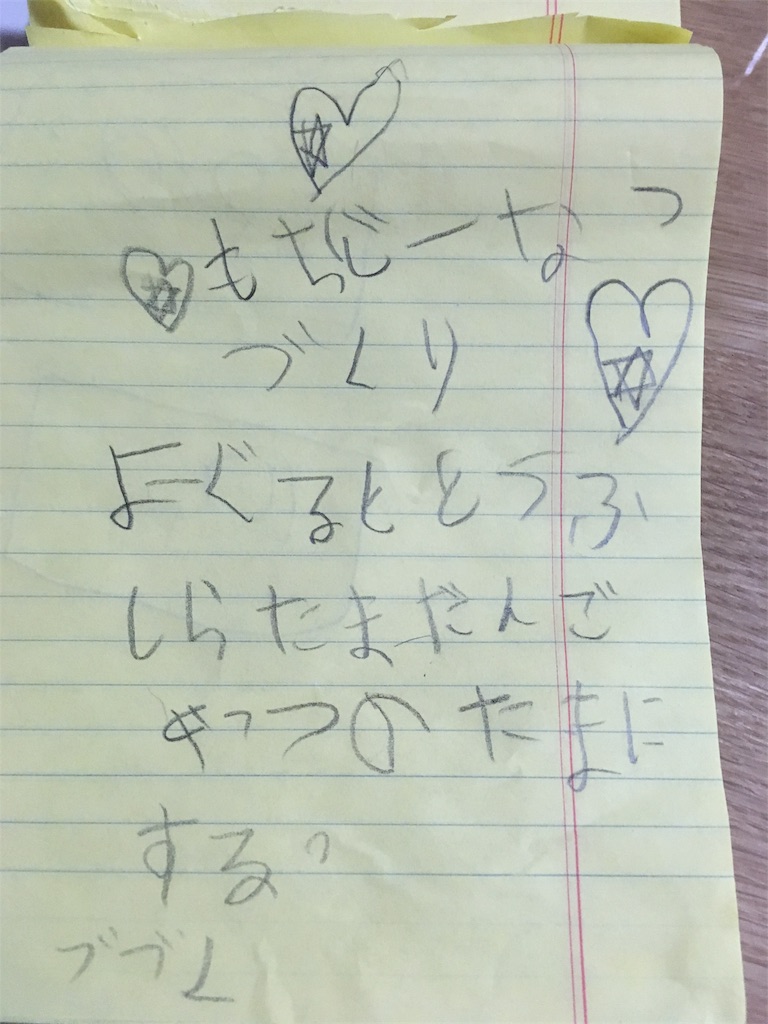 もちどーなつ
づくり
よーぐるととうふ
しらたまだんご
やっつのたまに
する。
づづく